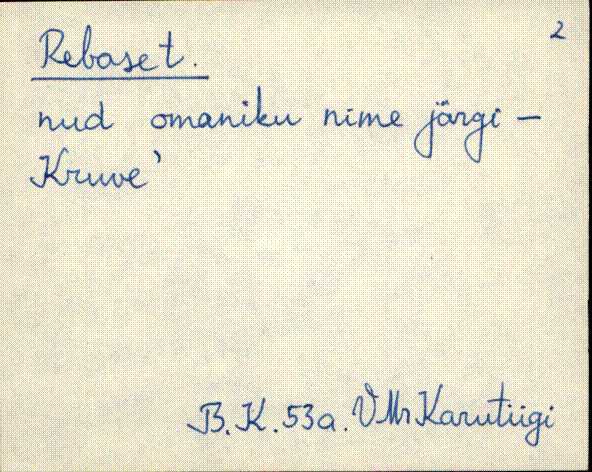 2
Rebaset.
nud omaniku nime järgi –
Kruve'
B.K.53a. VMr Karutiigi